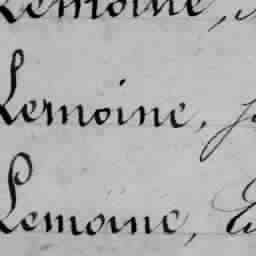 Lemoine,
Lemoine,
Lemoine,